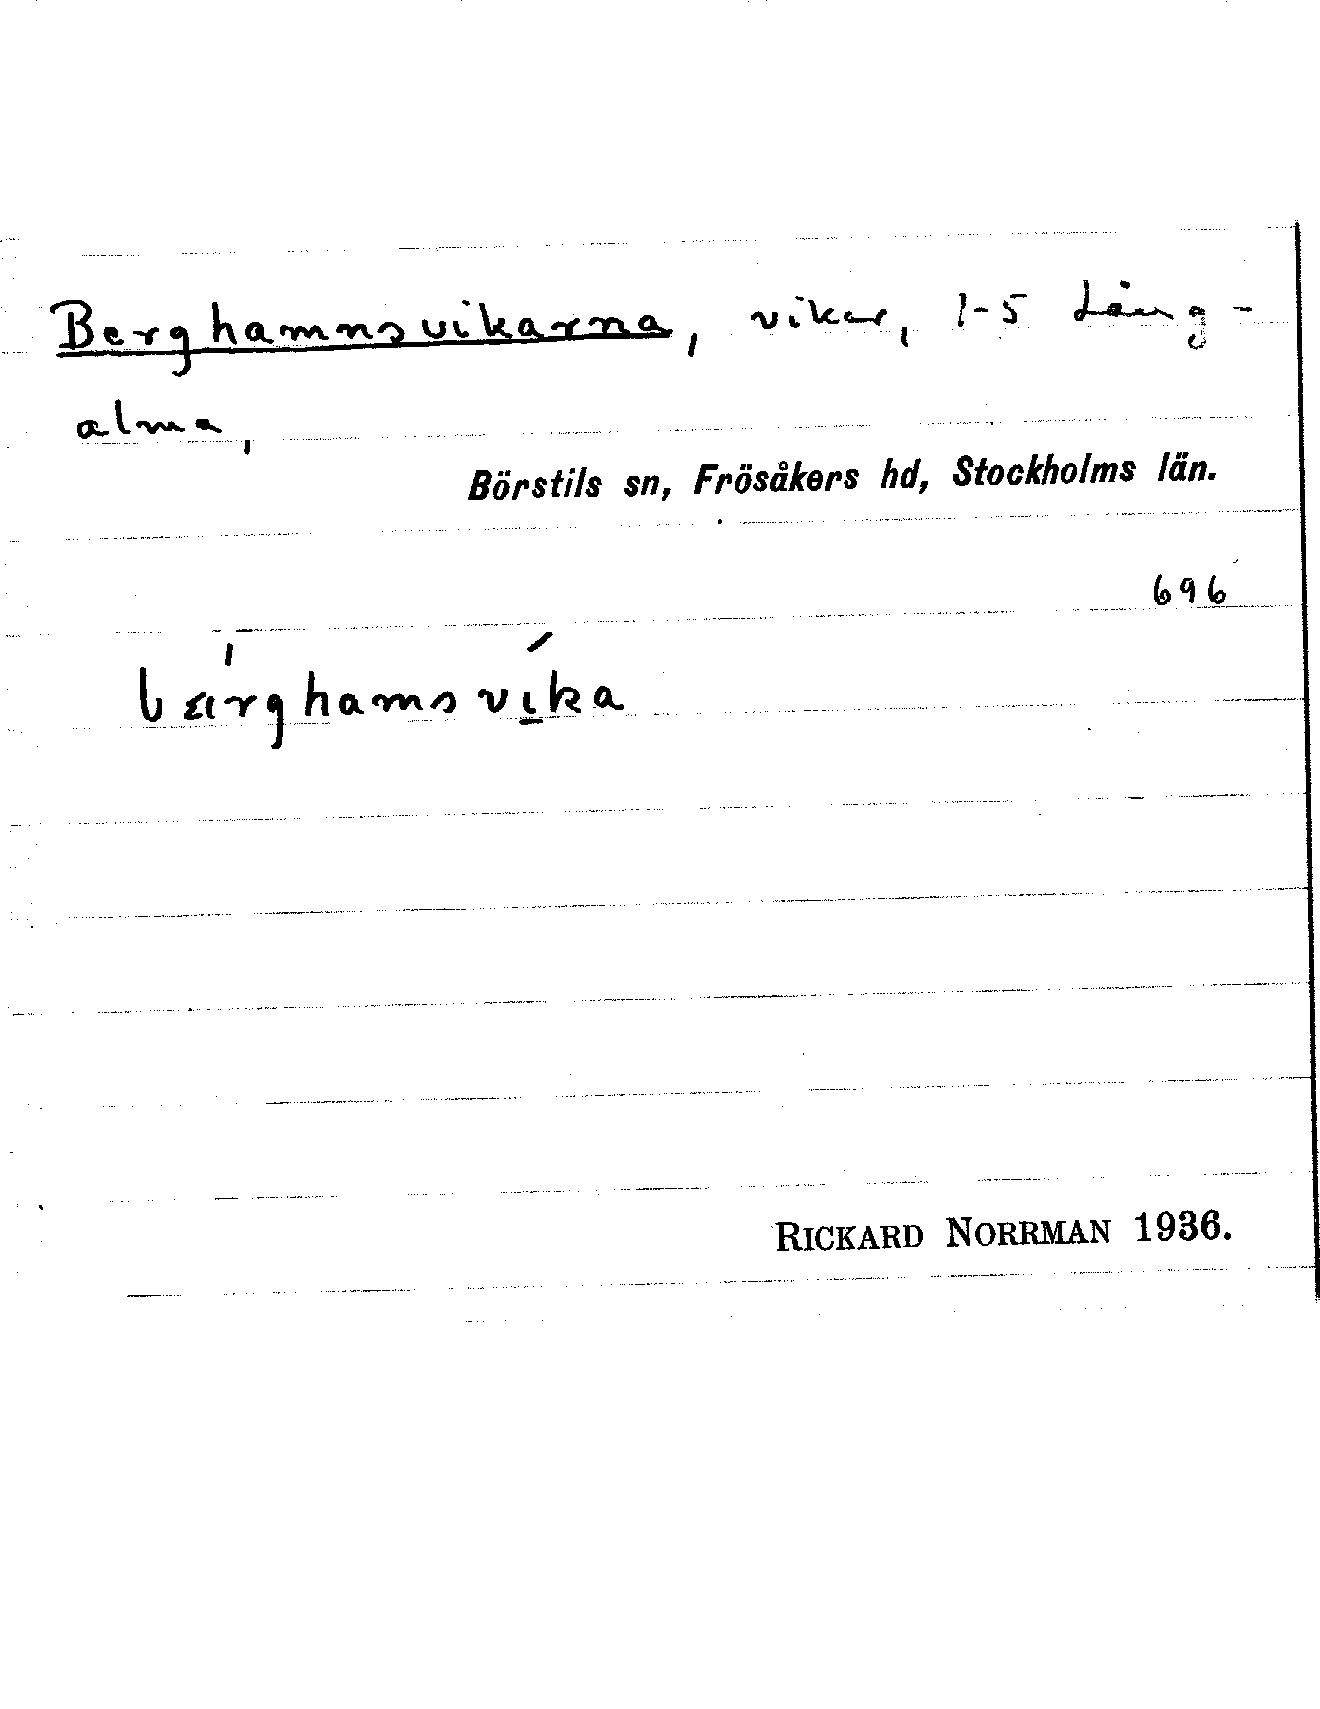 Berghamnsvikarna, vikar, 1-5 Lång-
alma,
Börstils sn, Frösåkers hd, Stockholms län.
696
bärghamsvika
RICKARD NORRMAN 1936.